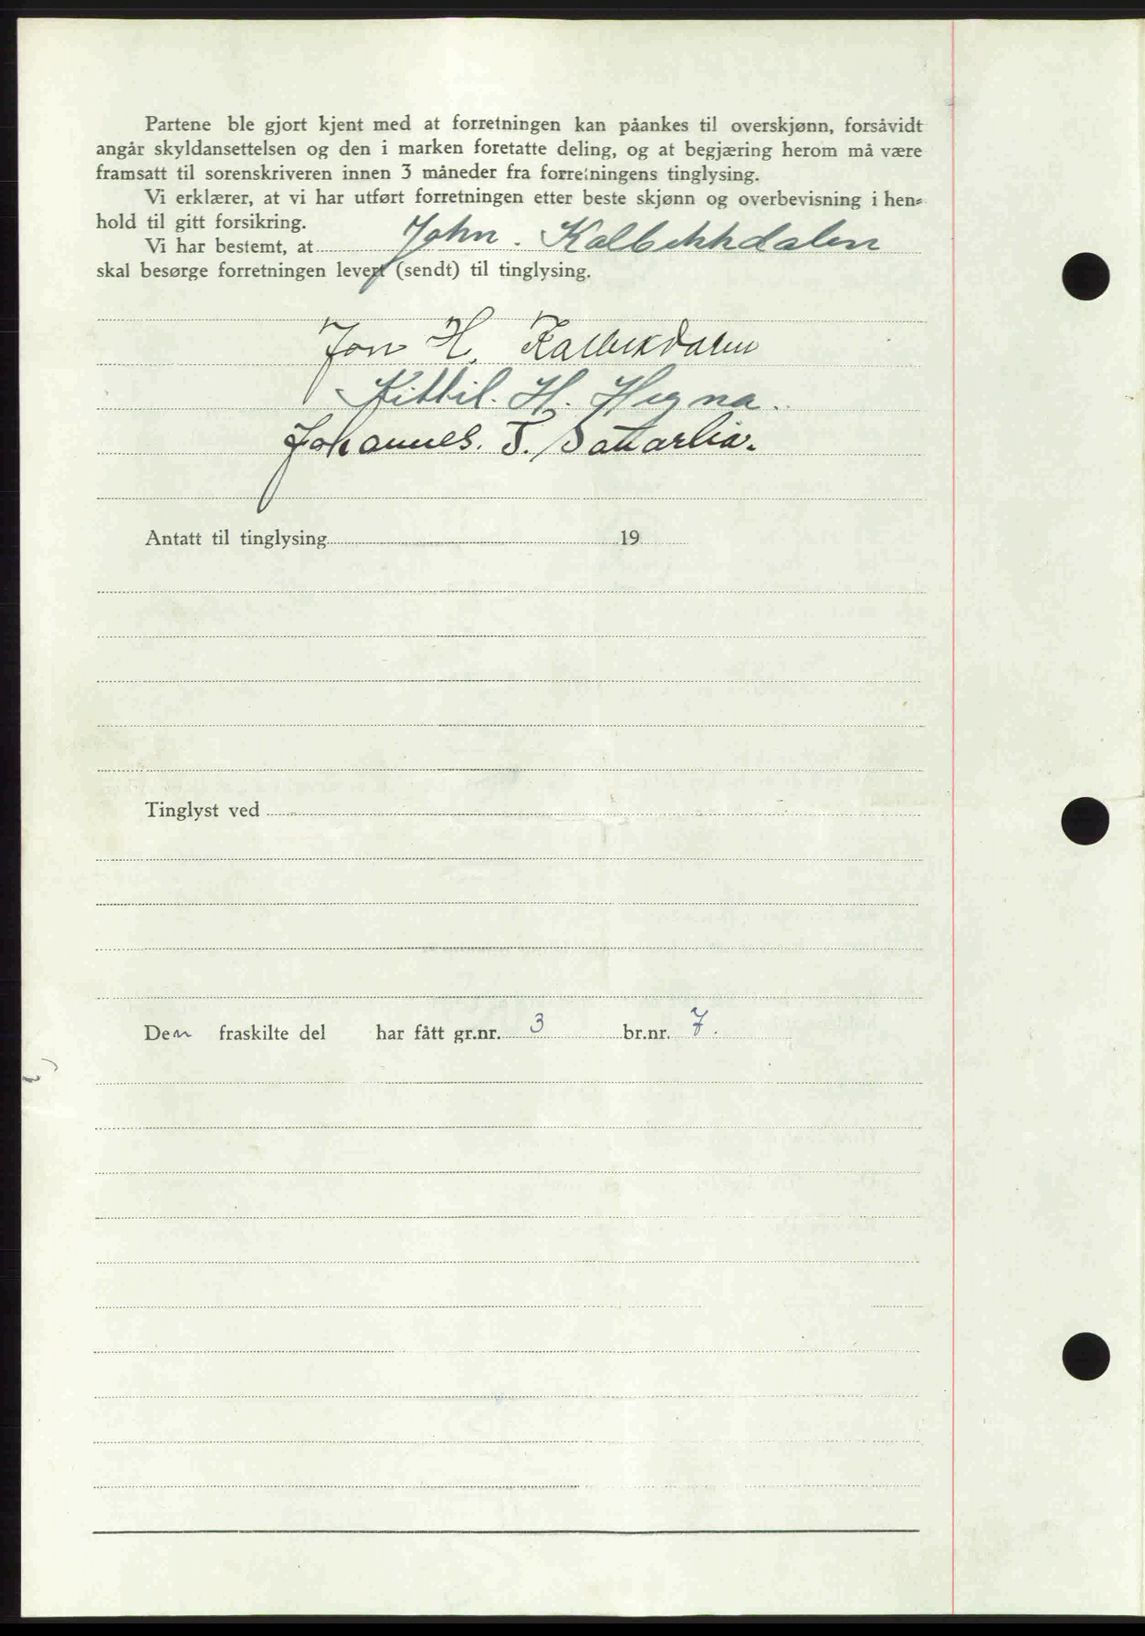 Partene ble gjort kjent med at forretningen kan påankes til overskjønn, forsåvidt
angår skyldansettelsen og den i marken foretatte deling, og at begjæring herom må være
framsatt til sorenskriveren innen 3 måneder fra forretningens tinglysing.
Vi erklærer, at vi har utført forretningen etter beste skjønn og overbevisning i hen=
hold til gitt forsikring.
Vi har bestemt, at John. Kalbekkdalen
skal besørge forretningen levert (sendt) til tinglysing.
Jon H. Kalbekdalen
Kittil. H. Hegna.
Johannes. T.
Antatt til tinglysing 19
Tinglyst ved
Den fraskilte del har fått gr.nr. 3 br.nr. 7.